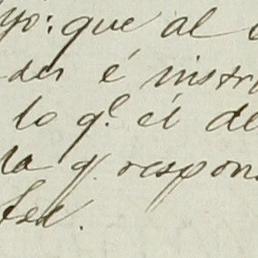 yo: que al
der é instr
lo q.e él de
la q. respon
tes.